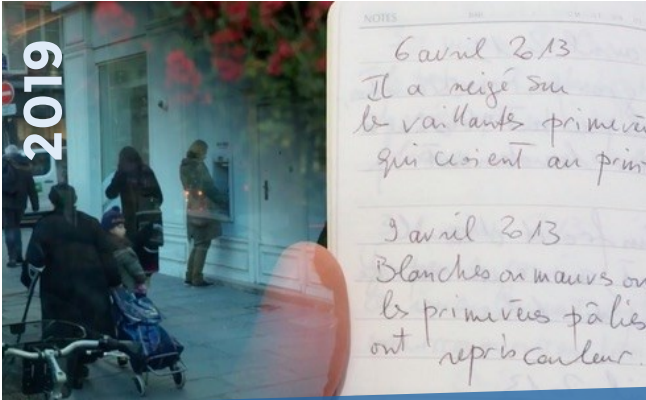 2019
NOTES
6 avril 2013
Il a neigé sur
les vaillantes primevè
qui croient au prin
9 avril 2013
Blanches ou mauves ou
les primevères pâlies
ont repris couleur.